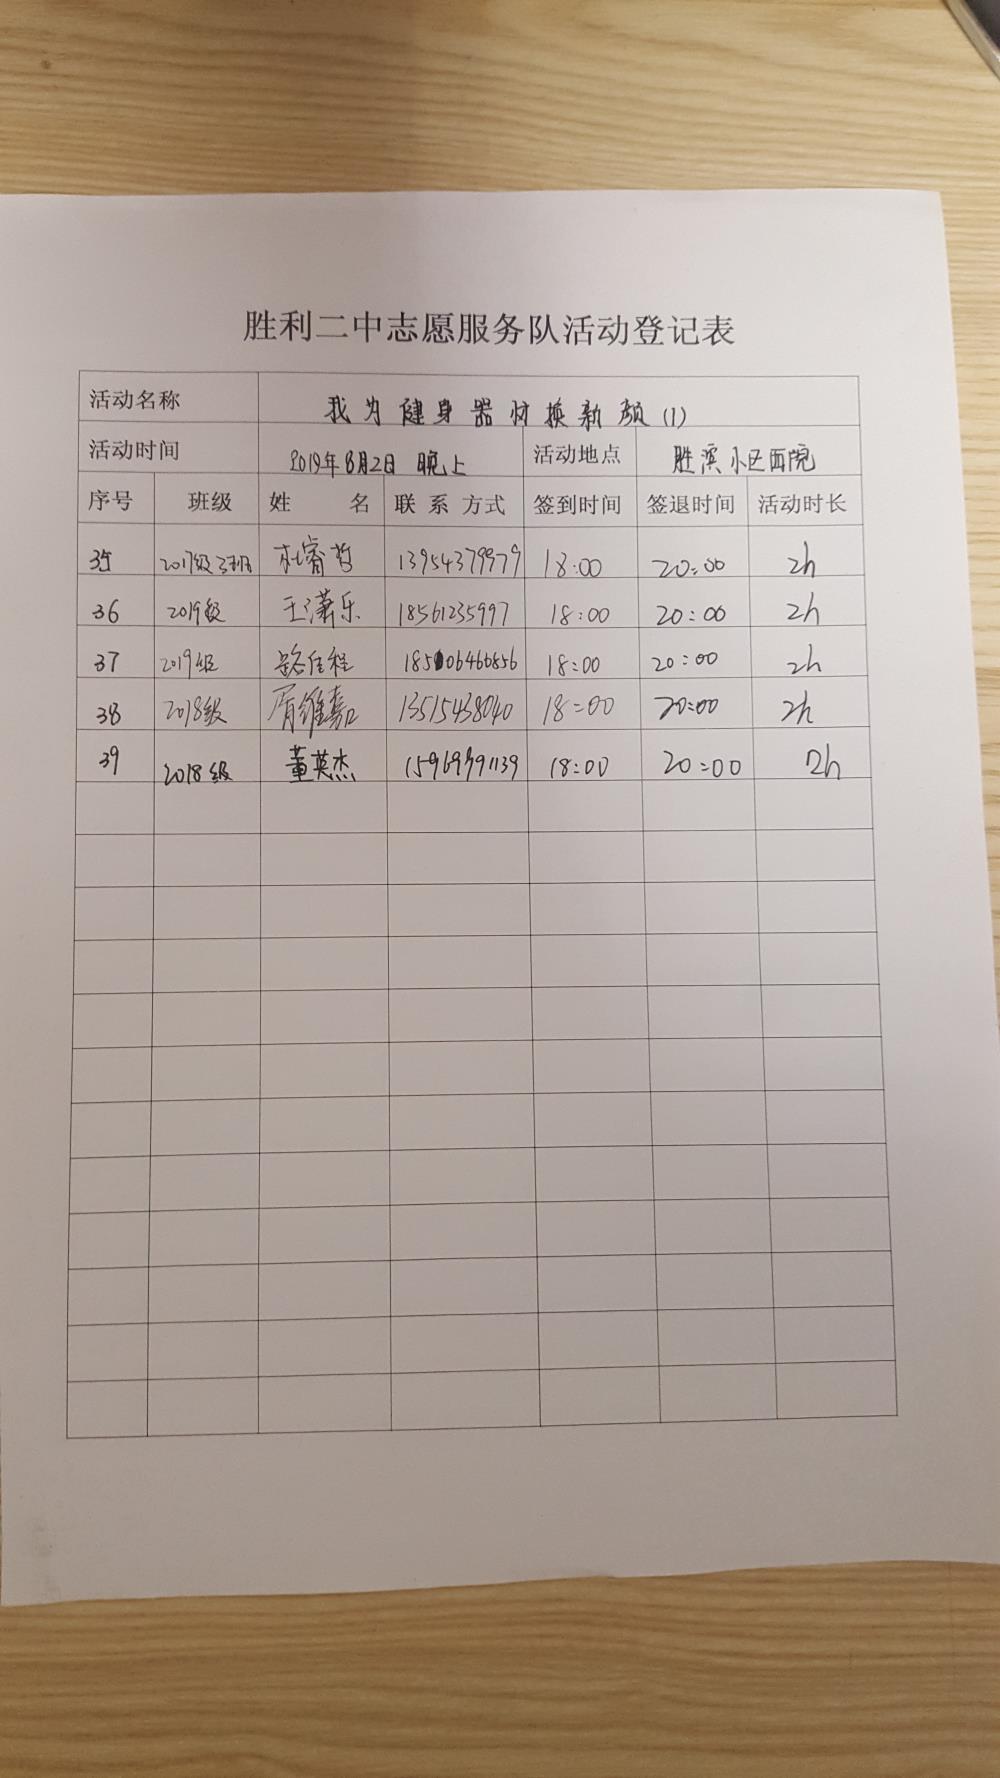 胜利二中志愿服务队活动登记表
活动名称 我为健身器材换新颜(1)
活动时间 2019年8月2日 晚上 活动地点 胜滨小区西院
序号 班级 姓名 联系方式 签到时间 签退时间 活动时长
35 2017级3班 杜睿哲 13954379979 18:00 20:00 2h
36 2019级 王潇乐 18561235997 18:00 20:00 2h
37 2019级 路佳程 18:00 20:00 2h
38 2018级 胥维嘉 13515438040 18:00 20:00 2h
39 2018级 董英杰 18:00 20:00 2h